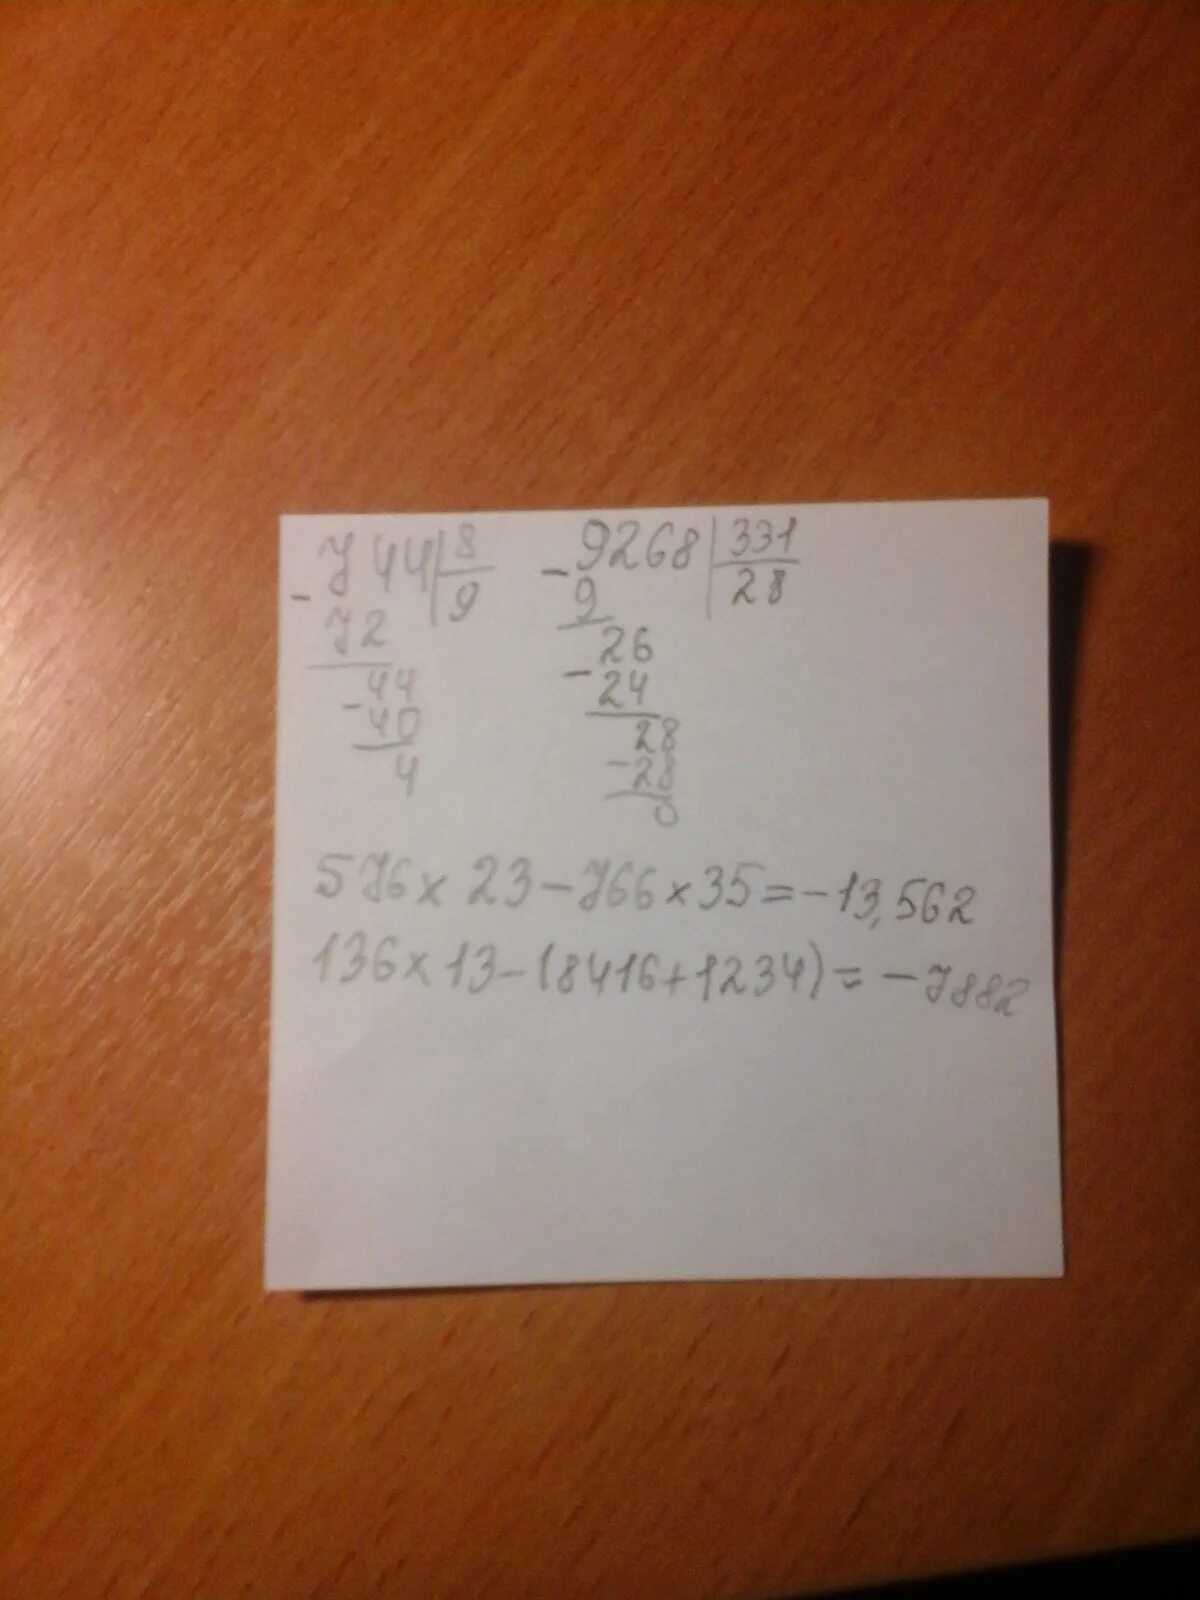 - 744 | 8
72 | 9
- 44
40
4
- 9268 | 331
9 | 28
- 26
24
28
- 28
0
576 × 23 - 766 × 35 = - 13,562
136 × 13 - (8416 + 1234) = - 7882